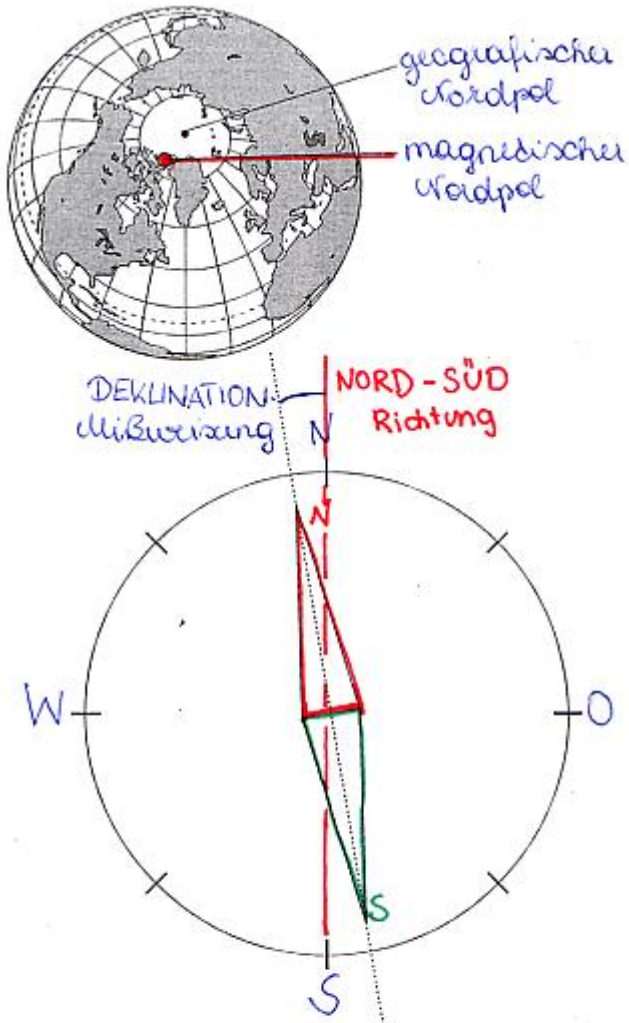 geografischer
Nordpol
magnetischer
Nordpol
DEKLINATION
Mißweisung
NORD-SÜD
Richtung
N
N
W
O
S
S